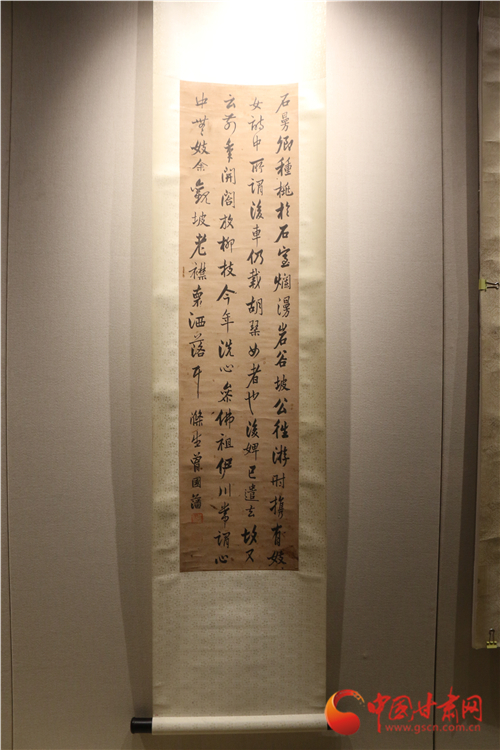 石曼卿種桃於石室爛漫岩谷坡公往游時攜有妓
女詩中所謂後車仍載胡琴女者也後婢已遣去故又
云前年開閣放柳枝今年洗心參佛祖伊川常謂心
中無妓余觀坡老襟懷洒落耳 滌生曾國藩
中国甘肃网
www.gscn.com.cn